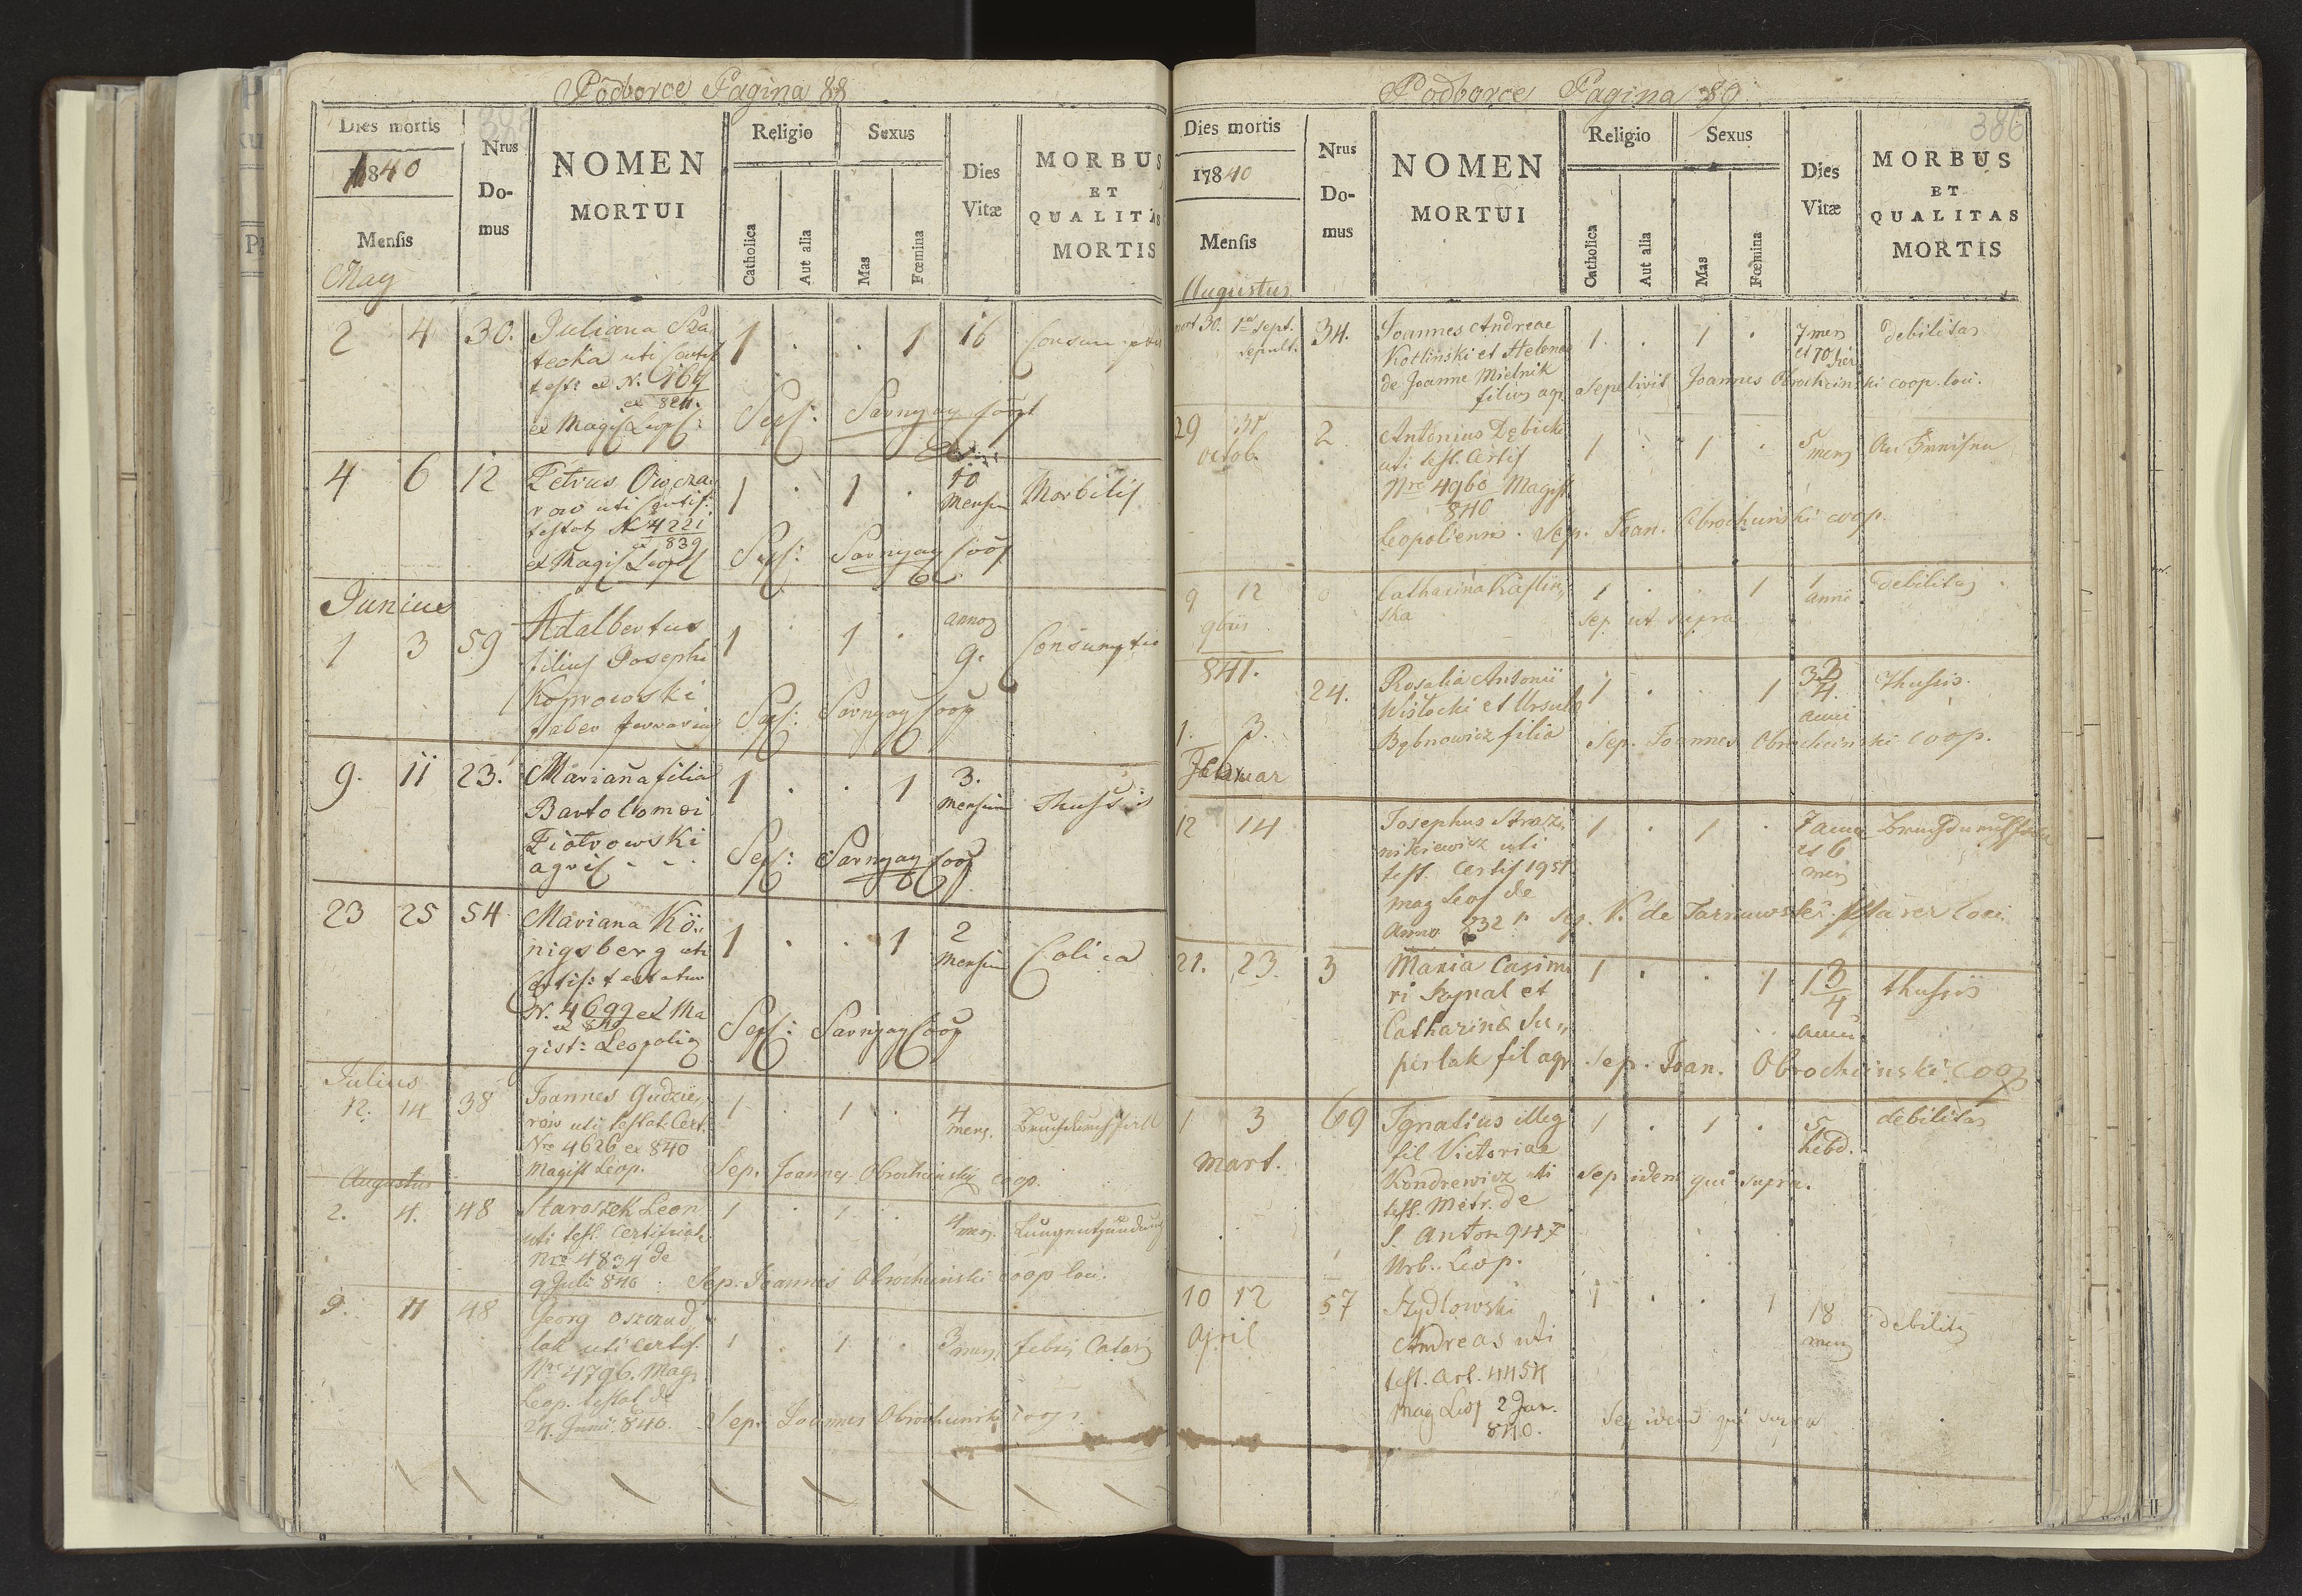 Podborce Pagina 88
Dies mortis
1840
Mensis
May
Nrus
Do-
mus
NOMEN
MORTUI
Religio
Catholica
Aut alia
Sexus
Mas
Fœmina
Dies
Vitæ
MORBUS
ET
QUALITAS
MORTIS
2 4 30. Juliana 1 . . 1 16
techa uti
test: ex N.
ex Magis Leop:
Sep: Sarnyay Coop
4 6 12 Petrus Owcza 1 . 1 . 10 Mensium Morbilis
row uti Certif:
testat N 4221
ex 839
ex Magis Leop
Sep: Sarnyay Coop
Junius
1 3 59 Adalbertus 1 . 1 . annos 9. Consumptio
filius Josephi
Koprowski
faber ferrarius
Sep: Sarnyay Coop
9. 11 23. Mariana filia 1 . . 1 3. mensium Thussis
Bartolomei
Piotrowski
agric
Sep: Sarnyay Coop
23 25 54 Mariana Kö- 1 . . 1 2 Mensium Colica
nigsberg uti
Certif: testatur
N. 4699 ex Ma
ex 840
gist: Leopolis
Sep: Sarnyay Coop
Julius
12. 14 38 Joannes Gudzie 1 . 1 . 4 mens.
row uti testat. Cert.
Nro 4626 ex 840
Magist Leop. Sep. Joannes Obrochcinski coop.
Augustus
2. 4. 48 Staroszek Leon 1 . 1 . 4 mens. Lungentzündung
uti test. Certificat
Nro 4834 de
9 Juli 840 Sep. Joannes Obrochcinski coop loci.
9. 11 48 Georg
lak uti certif. 1 . 1 . 3 mens. febris Catar
Nro 4796. Mag.
Leop. testat de
24. Junii 840. Sep. Joannes Obrochcinski coop.
Podborce Pagina 89
386
Dies mortis
17840
Mensis
Augustus
Nrus
Do-
mus
NOMEN
MORTUI
Religio
Catholica
Aut alia
Sexus
Mas
Fœmina
Dies
Vitæ
MORBUS
ET
QUALITAS
MORTIS
mort 30. 1a Sept. sepult. 34. Joannes Andreae 1. . 1 . 7 mens debilitas
Kotlinski et Helena
de Joanne Mielnik
filius agr. sepelivit Joannes Obrochcinski coop. loci.
29 31 2. Antonius Dębicki 1 . 1 . 5 mens
octob. uti test. Certif
Nro 4960 Magist
840
Leopoliensis. Sep. Joan. Obrochcinski coop.
9 12 Catharina 1 . . 1 1 anni debilitas
9bris ska Sep ut supra
841.
1. 3. 24. Rosalia Antonii 1 . . 1 anni thussis.
Wislocki et Ursula
filia Sep. Joannes Obrochcinski coop.
Februar
12 14 Josephus 1 . 1 . 7 anni et 6 mens
uti
test. Certif
mag Leop de
Anno 832 Sep. V. de Tarnawski Pfarer loci.
21. 23. 3 Maria Casimi 1 . . 1 1 3/4 anni thussis
ri Szpnal et
Catharinæ Su
perlak fil agr Sep. Joan. Obrochcinski Coop
1 3 69 Ignatius illeg 1 . 1 . 5 hebd. debilitas
mart. fil Victoriae
Kondrewicz uti Sep idem qui supra.
test. Metr. de
S. Anton
Urb. Leop.
10 12 57 Szydlowski 1 . . 1 18 mens debilitas
April Andreas uti
test. Art.
mag Leop 2 Jan.
840. Sep idem qui supra